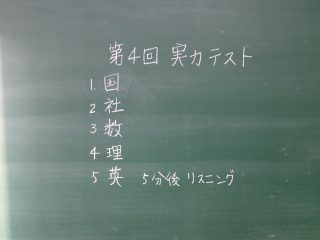 第4回 実力テスト
1. 国
2 社
3 数
4 理
5 英 5分後 リスニング